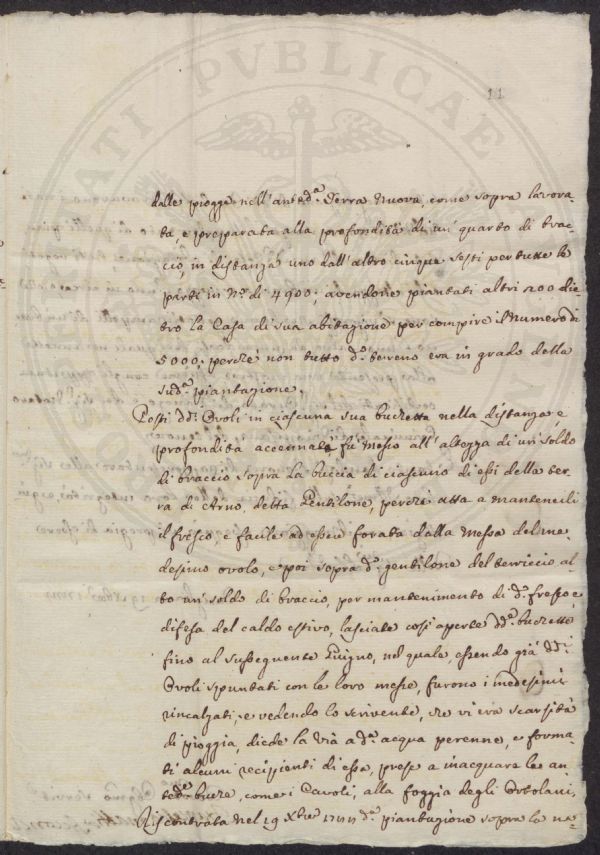 11
dalle piogge nell'anted.ª Terra nuova, come sopra lavora-
ta, e preparata alla profondità di un quarto di brac-
cio, in distanza uno dall'altro cinque sesti per tutte le
parti in N.º di 4900; avendone piantati altri 200 die-
tro la Casa di sua abitazione per compire il numero di
5000; perchè non tutto d.º terreno era in grado della
sud.ª piantazione.
Posti dd.i Ovoli in ciascuna sua buchetta nella distanza, e
profondità accennata, fù messo all'altezza di un soldo
di braccio sopra la buccia di ciascuno di essi della ter-
ra di Arno, detta Gentilone, perchè atta a mantenerli
il fresco, e facile ad esser forata dalla messa del me-
desimo ovolo, e poi sopra d.º gentilone del terriccio al-
to un soldo di braccio, per mantenimento di d.º fresco, e
difesa del caldo estivo, lasciate così aperte dd.e buchette
fino al susseguente Giugno, nel quale, essendo già dd.i
Ovoli spuntati con le loro messe, furono i medesimi
rincalzati, e vedendo lo scrivente, che vi era scarsità
di pioggia, diede la via a d.ª acqua perenne, e forma-
ti alcuni recipienti di essa, prese a inacquare le an-
ted.e buche, come i Cavoli, alla foggia degli Ortolani,
Riscontrata nel 19 Xbre d.ª piantazione sopra la na-
PVBLICAE